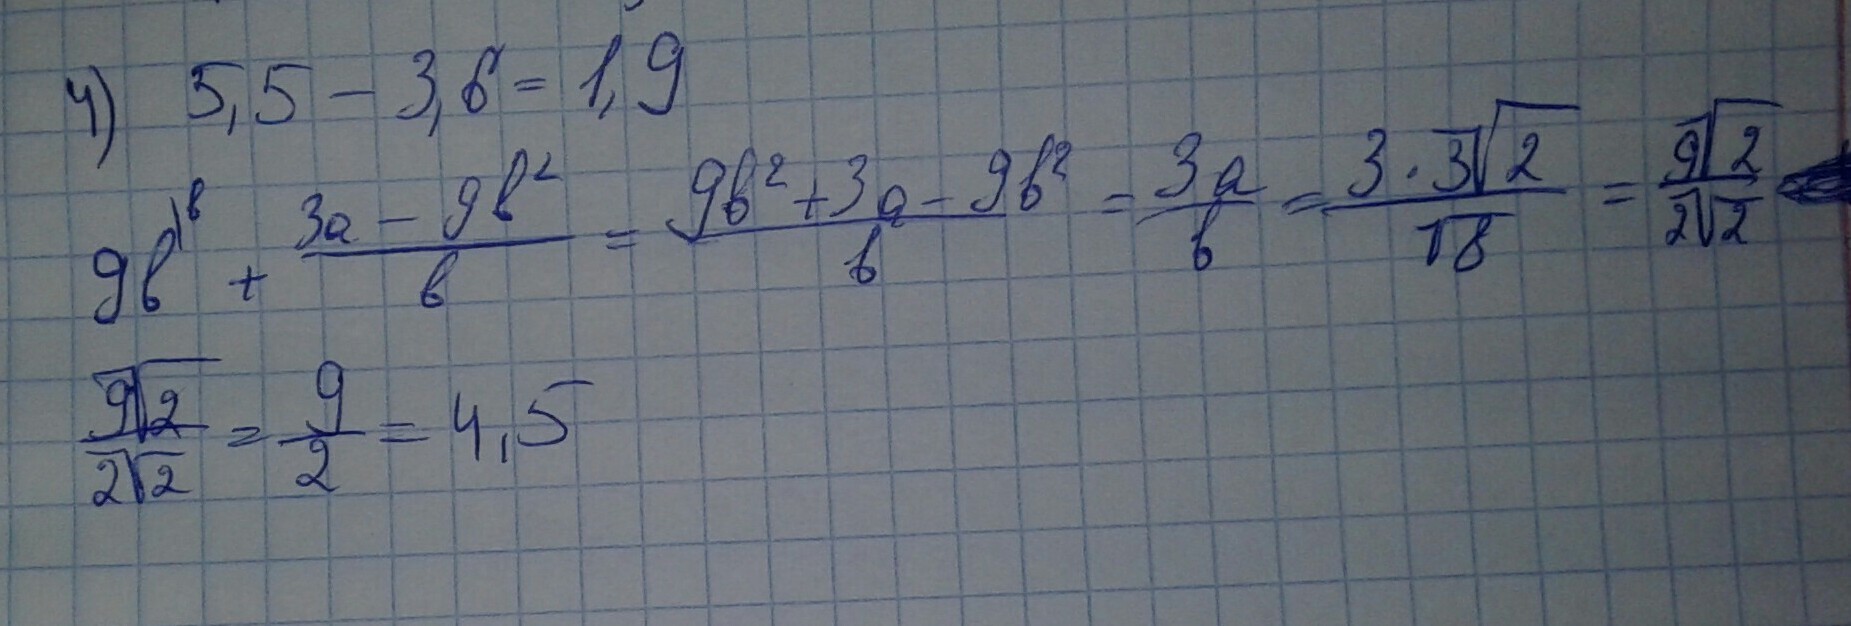 4) 5,5 - 3,6 = 1,9
9b^{\b} + \frac{3a - 9b²}{b} = \frac{9b² + 3a - 9b²}{b} = \frac{3a}{b} = \frac{3·3√2}{√8} = \frac{9√2}{2√2}
\frac{9√2}{2√2} = \frac{9}{2} = 4,5